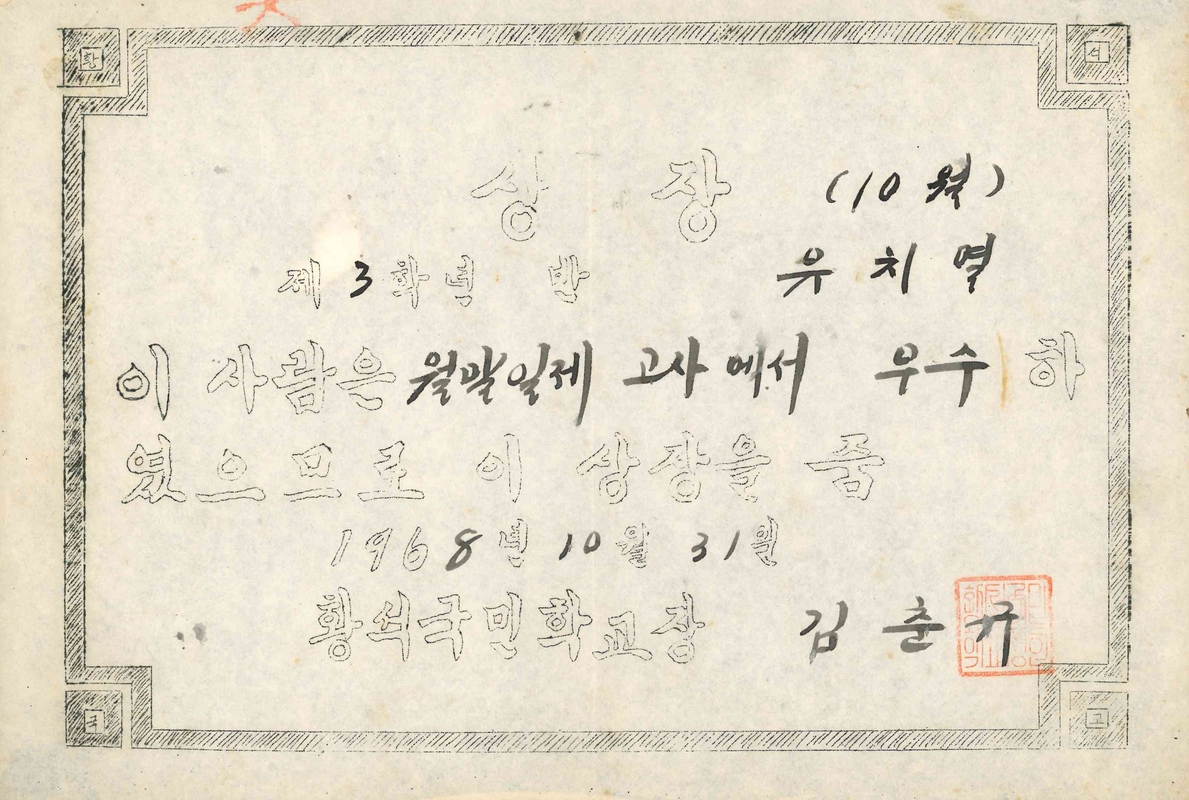 황 석
상 장 (10월)
제 3학년 반 유치열
이 사람은 월말일제 고사에서 우수하
였으므로 이 상장을 줌
1968년 10월 31일
황석국민학교장 김춘규
국 교